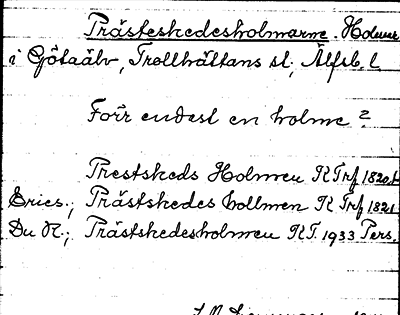 Prästeskedesholmarne. Holmar
i Götaälv, Trollhättans st., Älfsb. l.
Förr endast en holme?
Prestskeds Holmen R Trf 1820.
Eries.; Prästskedes hollmen R Trf 1821
Du R.; Prästskedesholmen R T. 1933 Pers.